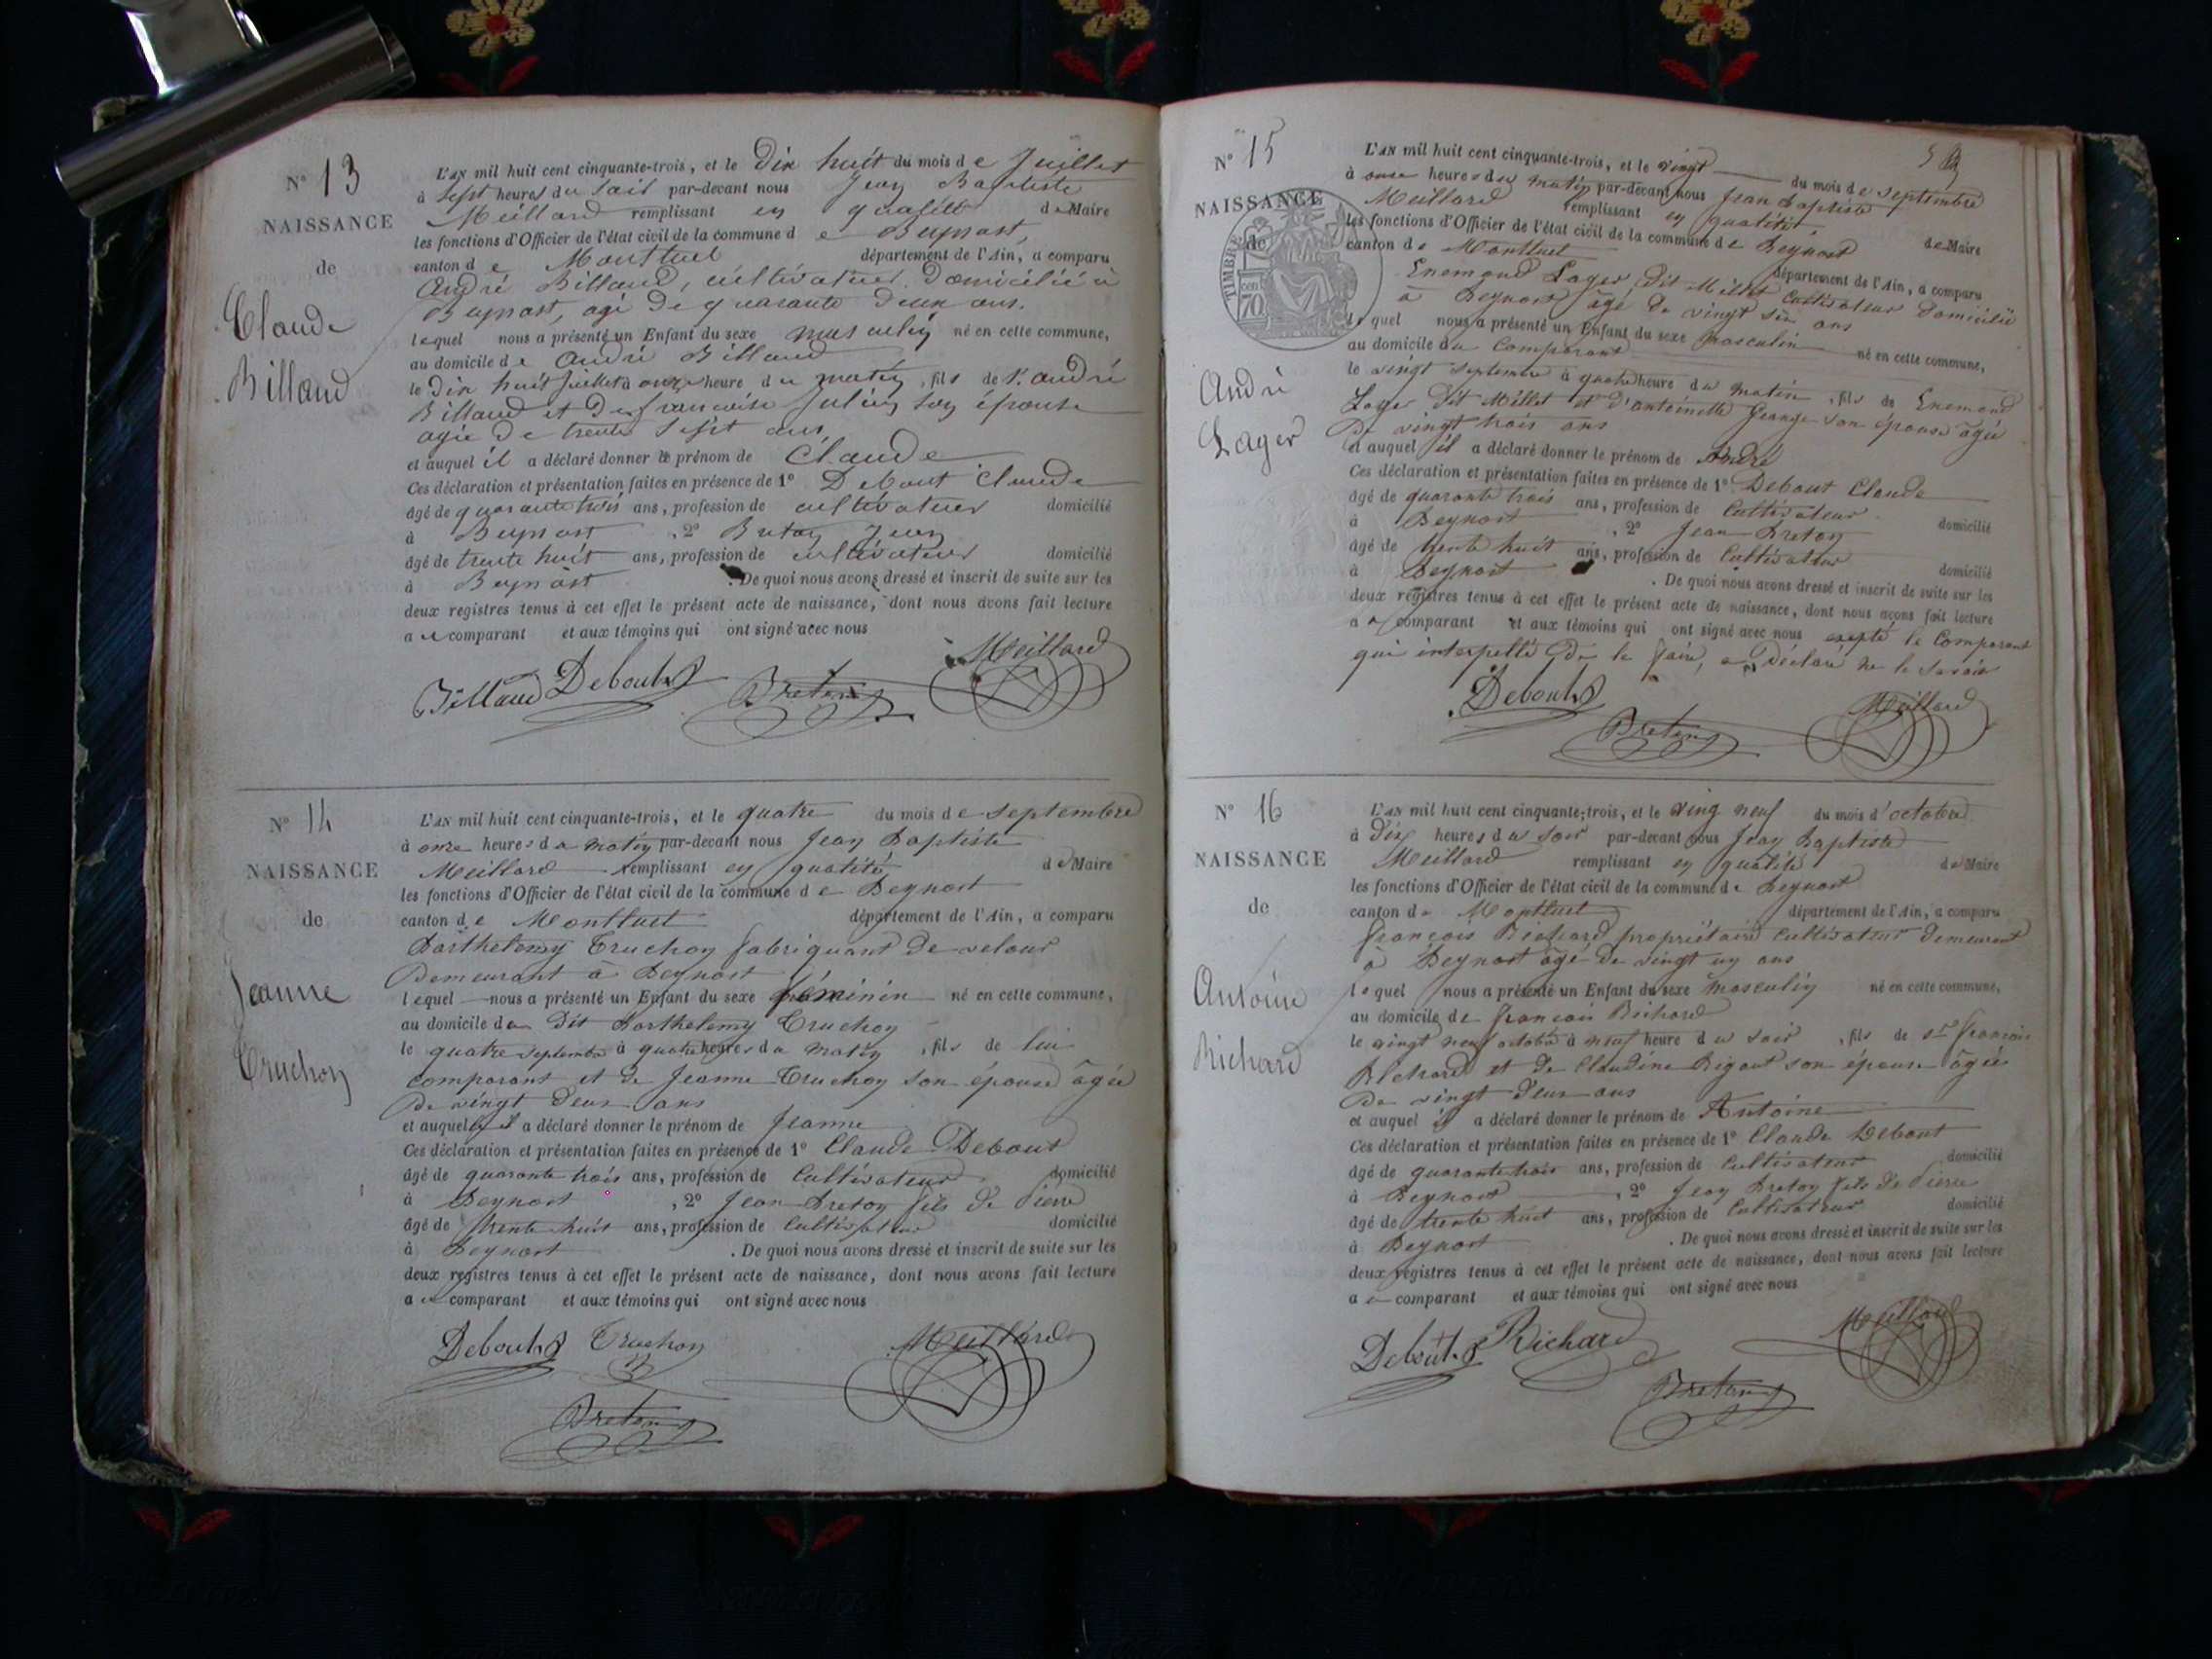 N° 13
NAISSANCE
de
Claude
Billaud
L'AN mil huit cent cinquante-trois, et le Dix huit du mois de Juillet
à Sept heures du soir par-devant nous Jean Baptiste
Meillard remplissant en qualité de Maire
les fonctions d'Officier de l'état civil de la commune de Beynost,
canton de Montluel département de l'Ain, a comparu
André Billaud, cultivateur, domicilié à
Beynost, agé de quarante deux ans.
lequel nous a présenté un Enfant du sexe masculin né en cette commune,
au domicile de André Billaud
le Dix huit Juillet à onze heure du matin, fils de S. André
Billaud et de françoise Julien son épouse
agée de trente sept ans,
et auquel il a déclaré donner le prénom de Claude
Ces déclaration et présentation faites en présence de 1° Debout Claude
âgé de quarante trois ans, profession de cultivateur domicilié
à Beynost, 2° Breton Jean
âgé de trente huit ans, profession de cultivateur domicilié
à Beynost. De quoi nous avons dressé et inscrit de suite sur les
deux registres tenus à cet effet le présent acte de naissance, dont nous avons fait lecture
au comparant et aux témoins qui ont signé avec nous
Billaud Debout Breton Meillard
N° 14
NAISSANCE
de
Jeanne
Truchon
L'AN mil huit cent cinquante-trois, et le quatre du mois de septembre
à onze heures du matin par-devant nous Jean Baptiste
Meillard remplissant en qualité de Maire
les fonctions d'Officier de l'état civil de la commune de Beynost
canton de Montluel département de l'Ain, a comparu
Barthelemy Truchon fabriquant de velour
Demeurant à Beynost
lequel nous a présenté un Enfant du sexe féminin né en cette commune,
au domicile du Dit Barthelemy Truchon
le quatre septembre à quatre heures du matin, fils de lui
comparant et de Jeanne Truchon son épouse âgée
De vingt deux ans
et auquel il a déclaré donner le prénom de Jeanne
Ces déclaration et présentation faites en présence de 1° Claude Debout
âgé de quarante trois ans, profession de Cultivateur domicilié
à Beynost, 2° Jean Breton fils de Pierre
âgé de trente huit ans, profession de Cultivateur domicilié
à Beynost. De quoi nous avons dressé et inscrit de suite sur les
deux registres tenus à cet effet le présent acte de naissance, dont nous avons fait lecture
au comparant et aux témoins qui ont signé avec nous
Debout Truchon Meillard
Breton
5
N° 15
NAISSANCE
de
TIMBRE
cen 70
André
Lager
L'AN mil huit cent cinquante-trois, et le vingt du mois de septembre
à onze heures du matin par-devant nous Jean Baptiste
Meillard remplissant en qualité de Maire
les fonctions d'Officier de l'état civil de la commune de Beynost
canton de Montluel département de l'Ain, a comparu
Enemond Lager dit Millet Cultivateur Domicilié
à Beynost âgé de vingt six ans
lequel nous a présenté un Enfant du sexe Masculin né en cette commune,
au domicile du Comparant
le vingt septembre à quatre heure du matin, fils de Enemond
Lager dit Millet et d'antoinette George son épouse âgée
De vingt trois ans
et auquel il a déclaré donner le prénom de André
Ces déclaration et présentation faites en présence de 1° Debout Claude
âgé de quarante trois ans, profession de Cultivateur domicilié
à Beynost, 2° Jean Breton
âgé de trente huit ans, profession de Cultivateur domicilié
à Beynost. De quoi nous avons dressé et inscrit de suite sur les
deux registres tenus à cet effet le présent acte de naissance, dont nous avons fait lecture
au comparant et aux témoins qui ont signé avec nous excepté le Comparant
qui interpellé De le faire, a Déclaré ne le savoir
Debout Breton Meillard
N° 16
NAISSANCE
de
Antoine
Richard
L'AN mil huit cent cinquante-trois, et le ving neuf du mois d'octobre
à Dix heures du soir par-devant nous Jean Baptiste
Meillard remplissant en qualité de Maire
les fonctions d'Officier de l'état civil de la commune de Beynost
canton de Montluel département de l'Ain, a comparu
françois Richard propriétaire Cultivateur Demeurant
à Beynost âgé de vingt un ans
lequel nous a présenté un Enfant du sexe Masculin né en cette commune,
au domicile de françois Richard
le vingt neuf octobre à neuf heure du soir, fils de sr françois
Richard et de Claudine Rigaut son épouse âgée
De vingt deux ans
et auquel il a déclaré donner le prénom de Antoine
Ces déclaration et présentation faites en présence de 1° Claude Debout
âgé de quarante trois ans, profession de Cultivateur domicilié
à Beynost, 2° Jean Breton fils de Pierre
âgé de trente huit ans, profession de Cultivateur domicilié
à Beynost. De quoi nous avons dressé et inscrit de suite sur les
deux registres tenus à cet effet le présent acte de naissance, dont nous avons fait lecture
au comparant et aux témoins qui ont signé avec nous
Debout Richard Meillard
Breton